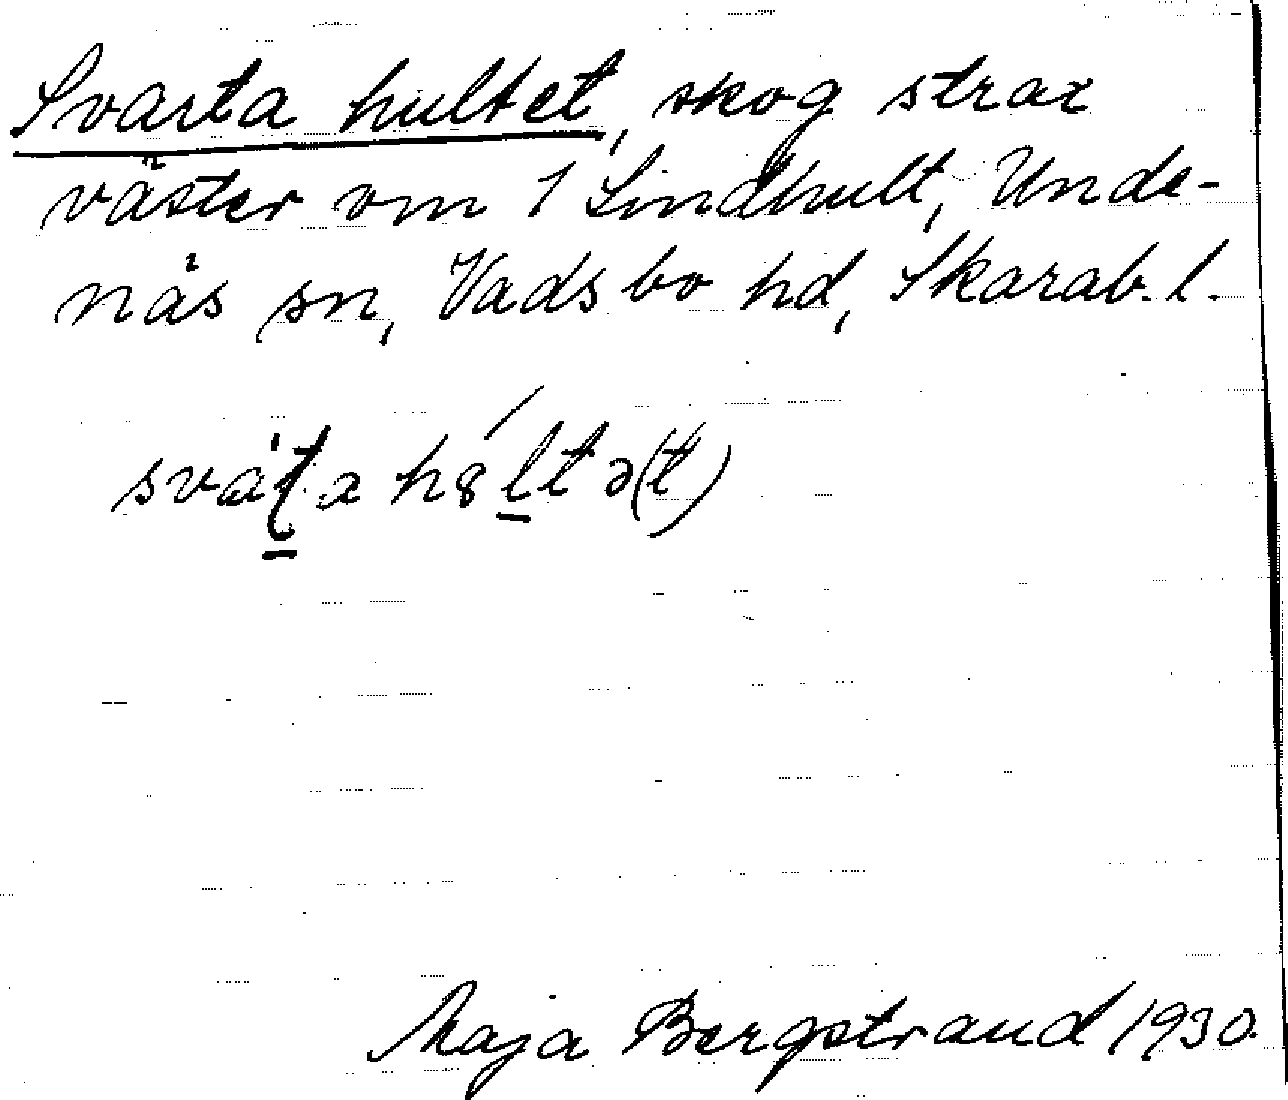 Svarta hultet, skog strax
väster om 1 Lindhult, Unde-
näs sn, Vadsbo hd, Skarab. l.
svaʈa h8ltə(t)
Maja Bergstrand 1930.